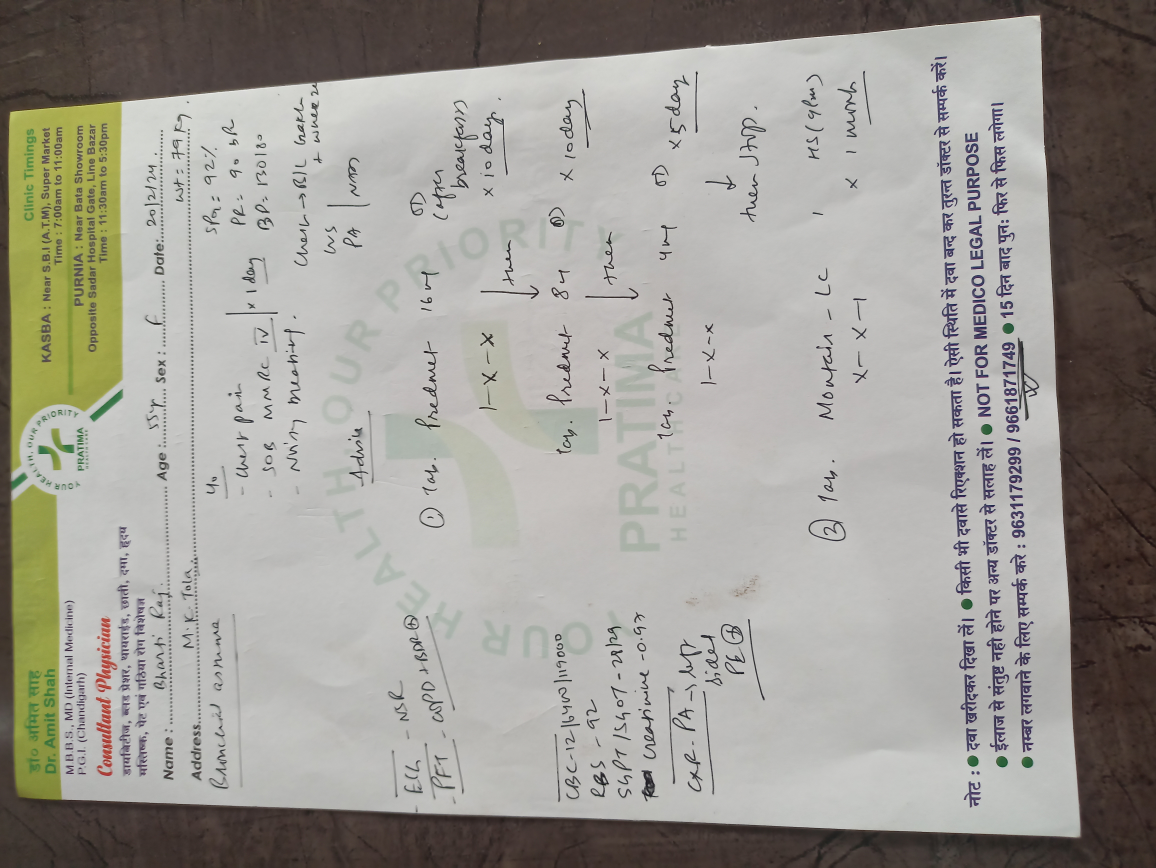 डॉ० अमित साह
Dr. Amit Shah
M.B.B.S., MD (Internal Medicine)
P.G.I. (Chandigarh)
Consultant Physician
डायबिटीज, ब्लड प्रेशर, थायराईड, छाती, दमा, हृदय
मस्तिष्क, पेट एवं गठिया रोग विशेषज्ञ
YOUR HEALTH, OUR PRIORITY
PRATIMA
Clinic Timings
KASBA : Near S.B.I (A.T.M), Super Market
Time : 7:00am to 11:00am
PURNIA : Near Bata Showroom
Opposite Sadar Hospital Gate, Line Bazar
Time : 11:30am to 5:30pm
Name : Bharti Raj Age : 55yr Sex : F Date: 20/2/24
Address M.K. Tola Wt = 79 kg
Bronchial asthma
- Chest pain
- SOB MMRC IV x 1 day
- Noisy breathing.
SPO2 = 92%
PR = 90
BP = 130/80
Chest → B/L
PA | NAD
- ECG - NSR
- PFT - COPD + BDR ⊕
CBC - 12/6400/119000
RBS - 92
SGPT/SGOT - 28/29
Creatinine - 0.97
CXR - PA →
sided
PE ⊕
Advise
① Tab. Predmet 16 mg OD
1-x-x (after breakfast)
x 10 day
↓ then
Tab. Predmet 8 mg OD x 10 day
1-x-x
↓ then
Tab. Predmet 4 mg OD x 5 day
1-x-x
↓
then stop.
② Tab. Montair - LC 1 HS (9pm)
x-x-1 x 1 month
YOUR HEALTH OUR PRIORITY
PRATIMA
HEALTHCARE
नोट : ● दवा खरीदकर दिखा लें। ● किसी भी दवासे रिएक्शन हो सकता है। ऐसी स्थिति में दवा बन्द कर तुरन्त डॉक्टर से सम्पर्क करें।
● ईलाज से संतुष्ट नही होने पर अन्य डॉक्टर से सलाह लें। ● NOT FOR MEDICO LEGAL PURPOSE
● नम्बर लगवाने के लिए सम्पर्क करे : 9631179299 / 9661871749 ● 15 दिन बाद पुन: फिर से फिस लगेगा।